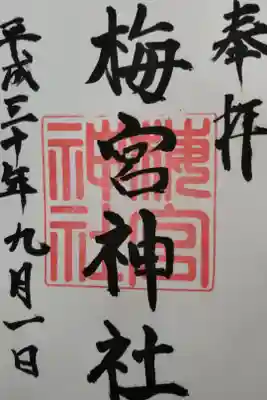 奉拝
梅宮神社
梅宮
神社
平成三十年九月一日